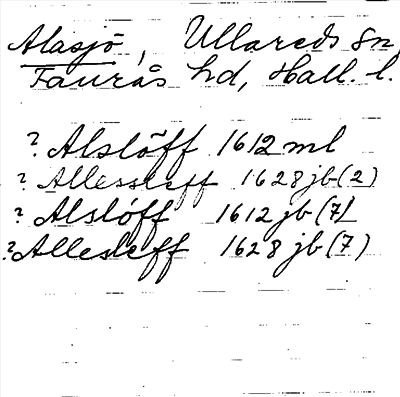 Alasjö, Ullareds sn,
Faurås hd, Hall. l.
? Alslöff 1612 ml
? Allessleff 1628 jb (2)
? Alslöff 1612 jb (7)
? Allesleff 1628 jb (7)